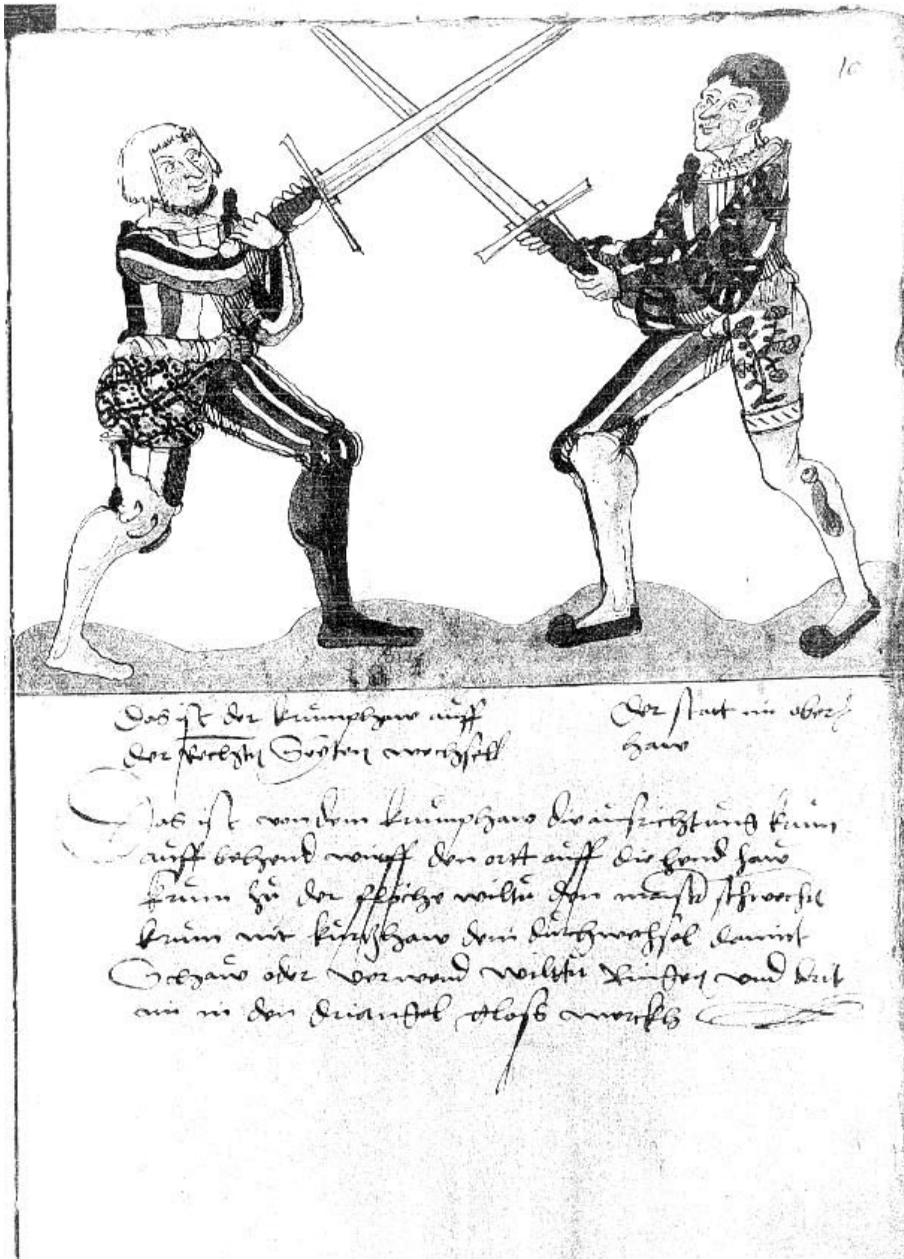 10
Das ist der krumphaw auff
der Rechsten Seyten wechsell
Der statt im ober
haw
Das ist von dem krumphaw die ausrichtung krum
auff behend wirff den ortt auff die hend haw
krum zu der flöche wiltu den maister schwechn
krum mit kurtzhaw dem durchwechsel damit
Schaw oder verwend wilttu Ringen und drit
im in den driangel gloss merckh